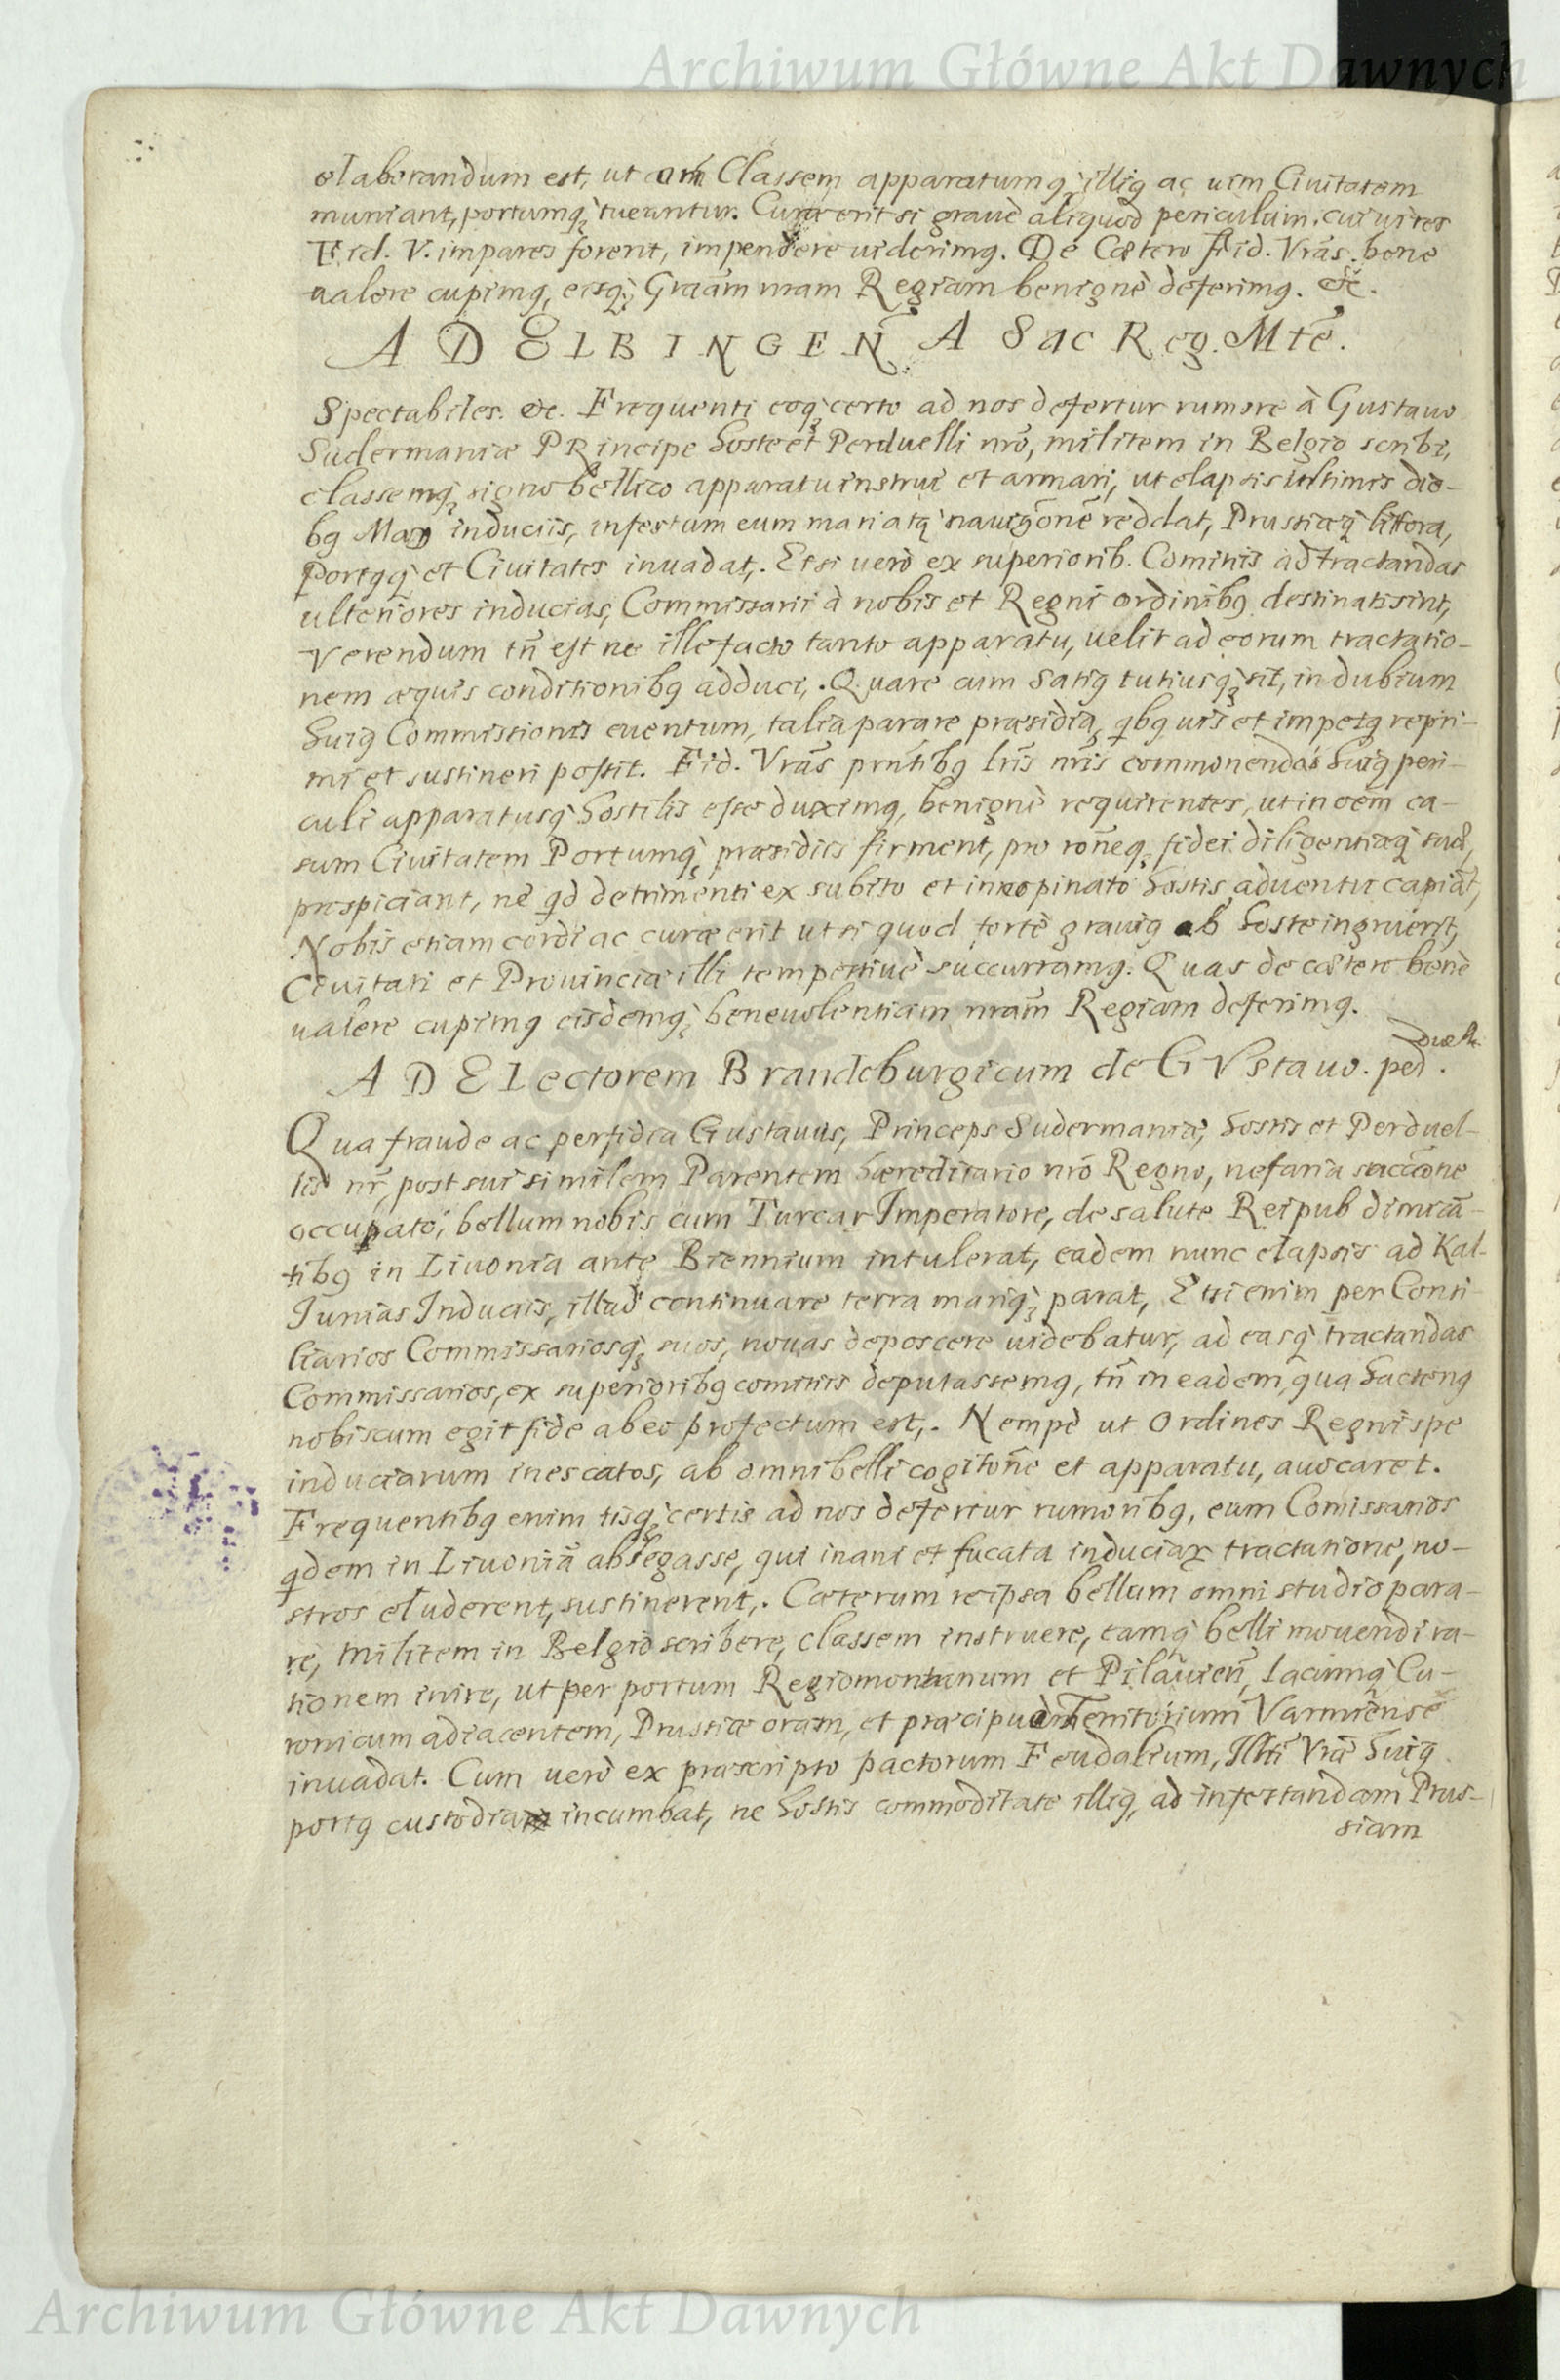 Archiwum Główne Akt Dawnych
elaborandum est, ut Classem apparatumq; illiq ac uim Ciuitatem
muniant, portumq; tueantur. Curae erit si graue aliquod periculum, cui uires
Fid. V. impares forent, impendere uiderimq. De Caetero Fid. Vrãs bene
ualere cupimq, eisq; Graãm nram Regiam benignè deferimq. &c.
AD ELBINGEÑ A Sac Reg. Mtẽ.
Spectabiles. &c. Frequenti eoq; certo ad nos defertur rumore à Gustauo
Sudermaniae PRincipe hoste et Perduelli nrõ, militem in Belgio scribi,
classemq; signo bellico apparatu instrui et armari, ut elapsis ultimis die-
bq Maij induciis, infestam eum maria atq; nauigõnẽ reddat, Prussiaeq; littora,
Portqq; et Ciuitates inuadat,. Etsi uerò ex superiorib. Comitiis ad tractandas
ulteriores inducias, Commissarii à nobis et Regni ordinibq destinati sint,
Verendum tñ est ne ille facto tanto apparatu, uelit ad eorum tractatio-
nem aequis conditionibq adduci,. Quare cum Satiq tutiusq; sit, in dubium
huiq Commissionis euentum, talia parare praesidia, qbq uis et impetq repri-
mi et sustineri possit. Fid. Vrãs prñtibq lrĩs nrĩs commonendas huiq peri-
culi apparatusq; hostilis esse duximq, benignè requirentes, ut in oẽm ca-
sum Ciuitatem Portumq; praesidiis firment, pro rõneq; fidei diligentiaeq; suae,
prospiciant, nè qd detrimenti ex subito et inopinato hostis aduentu capiãt,
Nobis etiam cordi ac curae erit ut si quod fortè grauiq ab hoste ingruerit,
Ciuitati et Prouinciae illi tempestiuè succurramq. Quas de caetero benè
ualere cupimq eisdemq; beneuolentiam nrãm Regiam deferimq.
AD ELectorem Brandeburgicum de GVstauo. ped. duelle
Qua fraude ac perfidia Gustauus, Princeps Sudermaniae, hostis et Perduel-
lis nr̃, post sui similem Parentem haereditario nrõ Regno, nefaria
occupato, bellum nobis cum Turcar Imperatore, de salute Reipub dimicã-
tibq in Liuonia ante Biennium intulerat, eadem nunc elapsis ad Kal-
Iunias Induciis, illud continuare terra mariq; parat, Etsi enim per Consi-
liarios Commissariosq; suos, nouas deposcere uidebatur, ad easq; tractandas
Commissarios, ex superioribq comitiis deputassemq, tñ in eadem, qua hactenq
nobiscum egit fide ab eo profectum est,. Nempè ut Ordines Regni spe
induciarum inescatos, ab omni belli cogitõne et apparatu, auocaret.
Frequentibq enim iisq; certis ad nos defertur rumoribq, eum Comissarios
qdem in Liuoniã ablegasse, qui inani et fucata induciar tractatione, no-
stros eluderent, sustinerent,. Caeterum reipsa bellum omni studio para-
re, Militem in Belgio scribere, classem instruere, eamq; belli mouendi ra-
tionem inire, ut per portum Regiomontanum et Pilauieñ, lacumq; Cu-
ronicum adiacentem, Prussiae oram, et praecipuè Territorium Varmiense
inuadat. Cum uerò ex praescripto pactorum Feudalium, Illti Vrae huiq
portq custodia incumbat, ne hostis commoditate illiq, ad infestandam Prus-
siam
Archiwum Główne Akt Dawnych